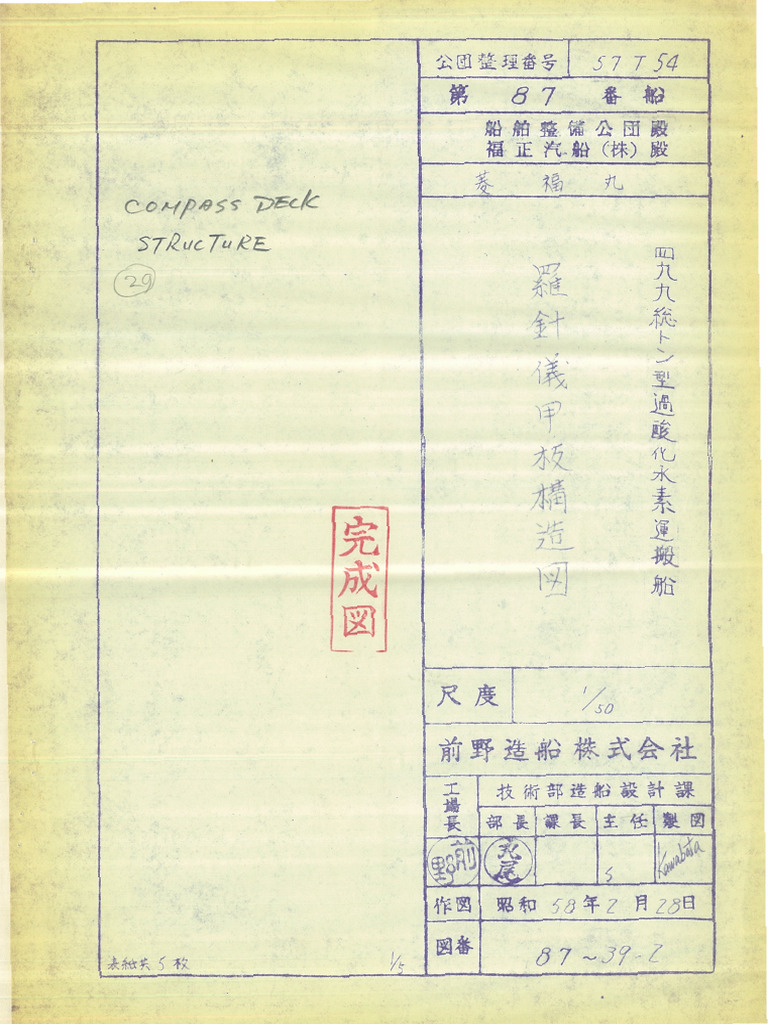 公団整理番号 57T54
第 87 番船
船舶整備公団殿
福正汽船(株)殿
菱福丸
四九九総トン型過酸化水素運搬船
羅針儀甲板構造図
COMPASS DECK
STRUCTURE
29
完成図
尺度 1/50
前野造船株式会社
工場長 技術部造船設計課
部長 課長 主任 製図
前野 Kawabata
作図 昭和58年2月28日
図番 87~39-2
表紙共5枚 1/5